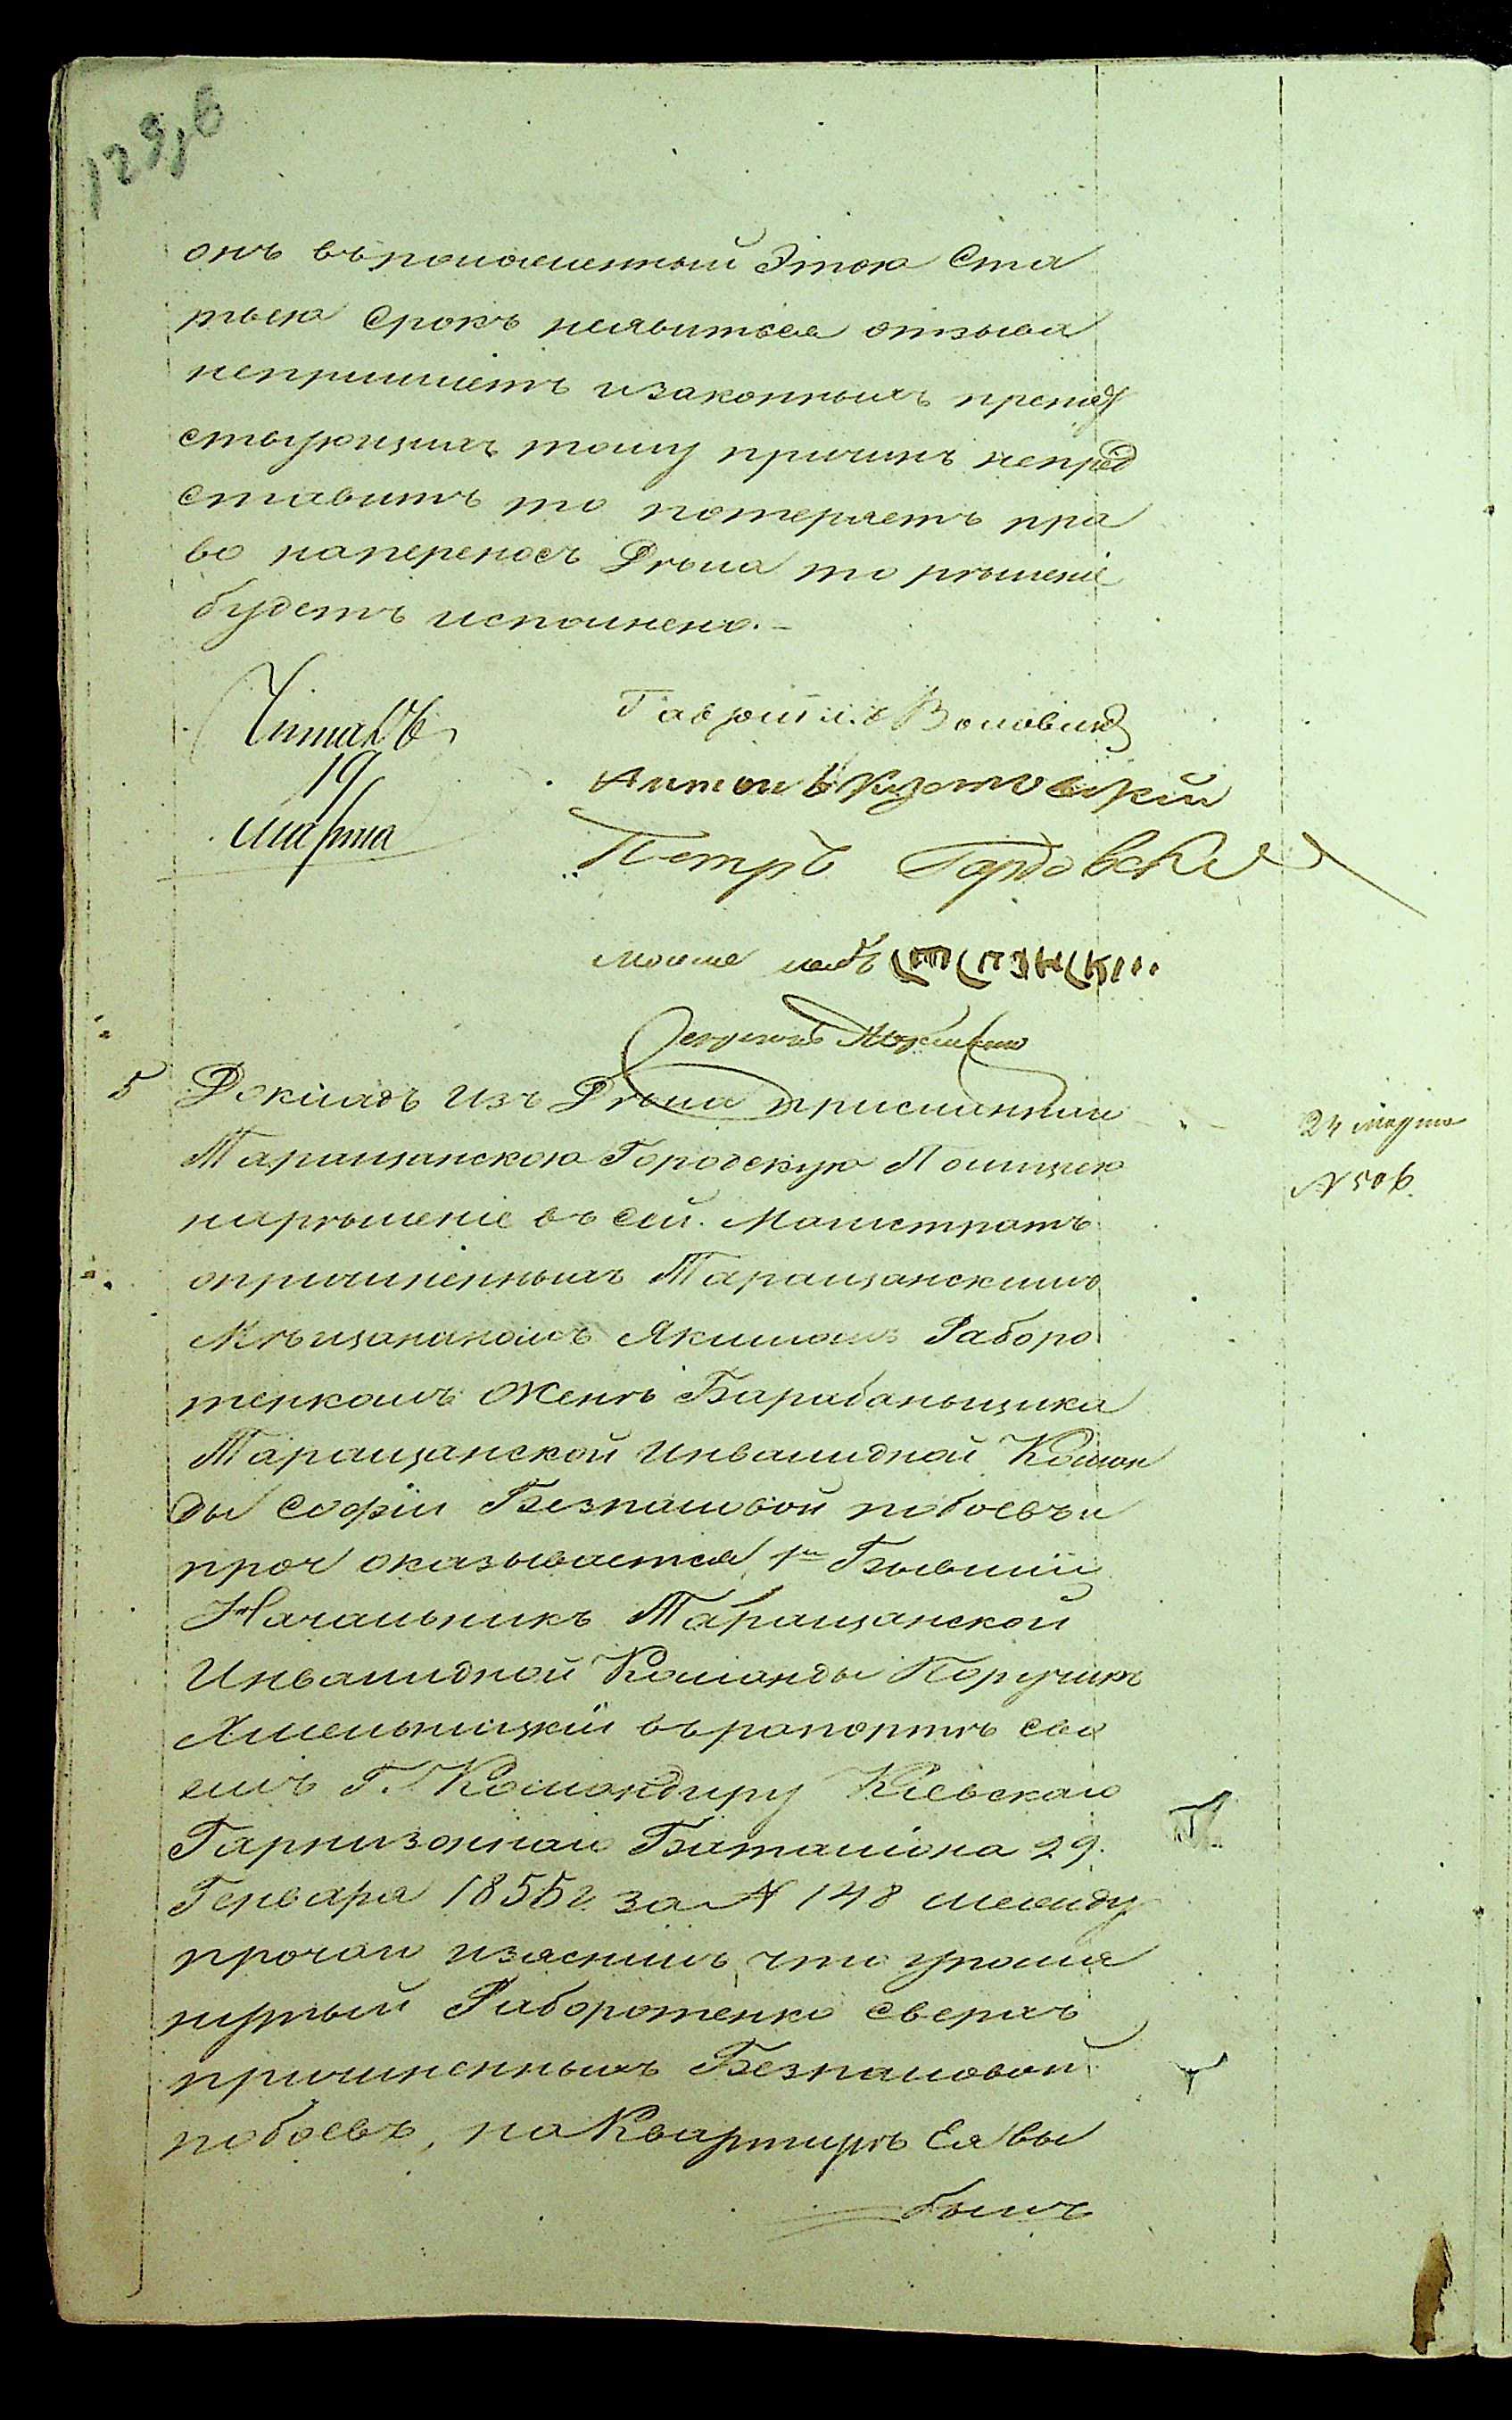 129,б
онъ въ положенный Этою Ста
тьею Срокъ неявится отзыва
непришлетъ изаконныхъ препят
ствующихъ тому причинъ непред
ставитъ то потеряетъ пра
во наперенос Дѣла то рѣшеніе
будетъ исполнено.-
Читалъ
19
марта
Гавріилъ
Антонъ
Петръ
Мошко
Секретарь
5 Докладъ Изъ Дѣла присланнаго
Таращанскою Городскую Полицею
нарѣшеніе въ сей Магистратъ
опричиненныхъ Таращанскимъ
Мѣщаниномъ Якимомъ Раборо
тенкомъ Женѣ Барабаньщика
Таращанской Инвалидной Коман
ды Софіи Безпаловой побоевъ и
проч оказывается, 1е Бывшій
Начальникъ Таращанской
Инвалидной Команды Поручикъ
Хмельницкій върапортѣ сво
емъ Г. Командиру Кіевскаго
Гарнизоннаго Баталіона 29.
Генваря 1855 г. за N 148 между
прочаго изяснилъ, что упомя
нутый Раборотенко сверхъ
причиненныхъ Безпаловой
побоевъ, на Квартирѣ Ея вы
билъ
24 марта
N 506.